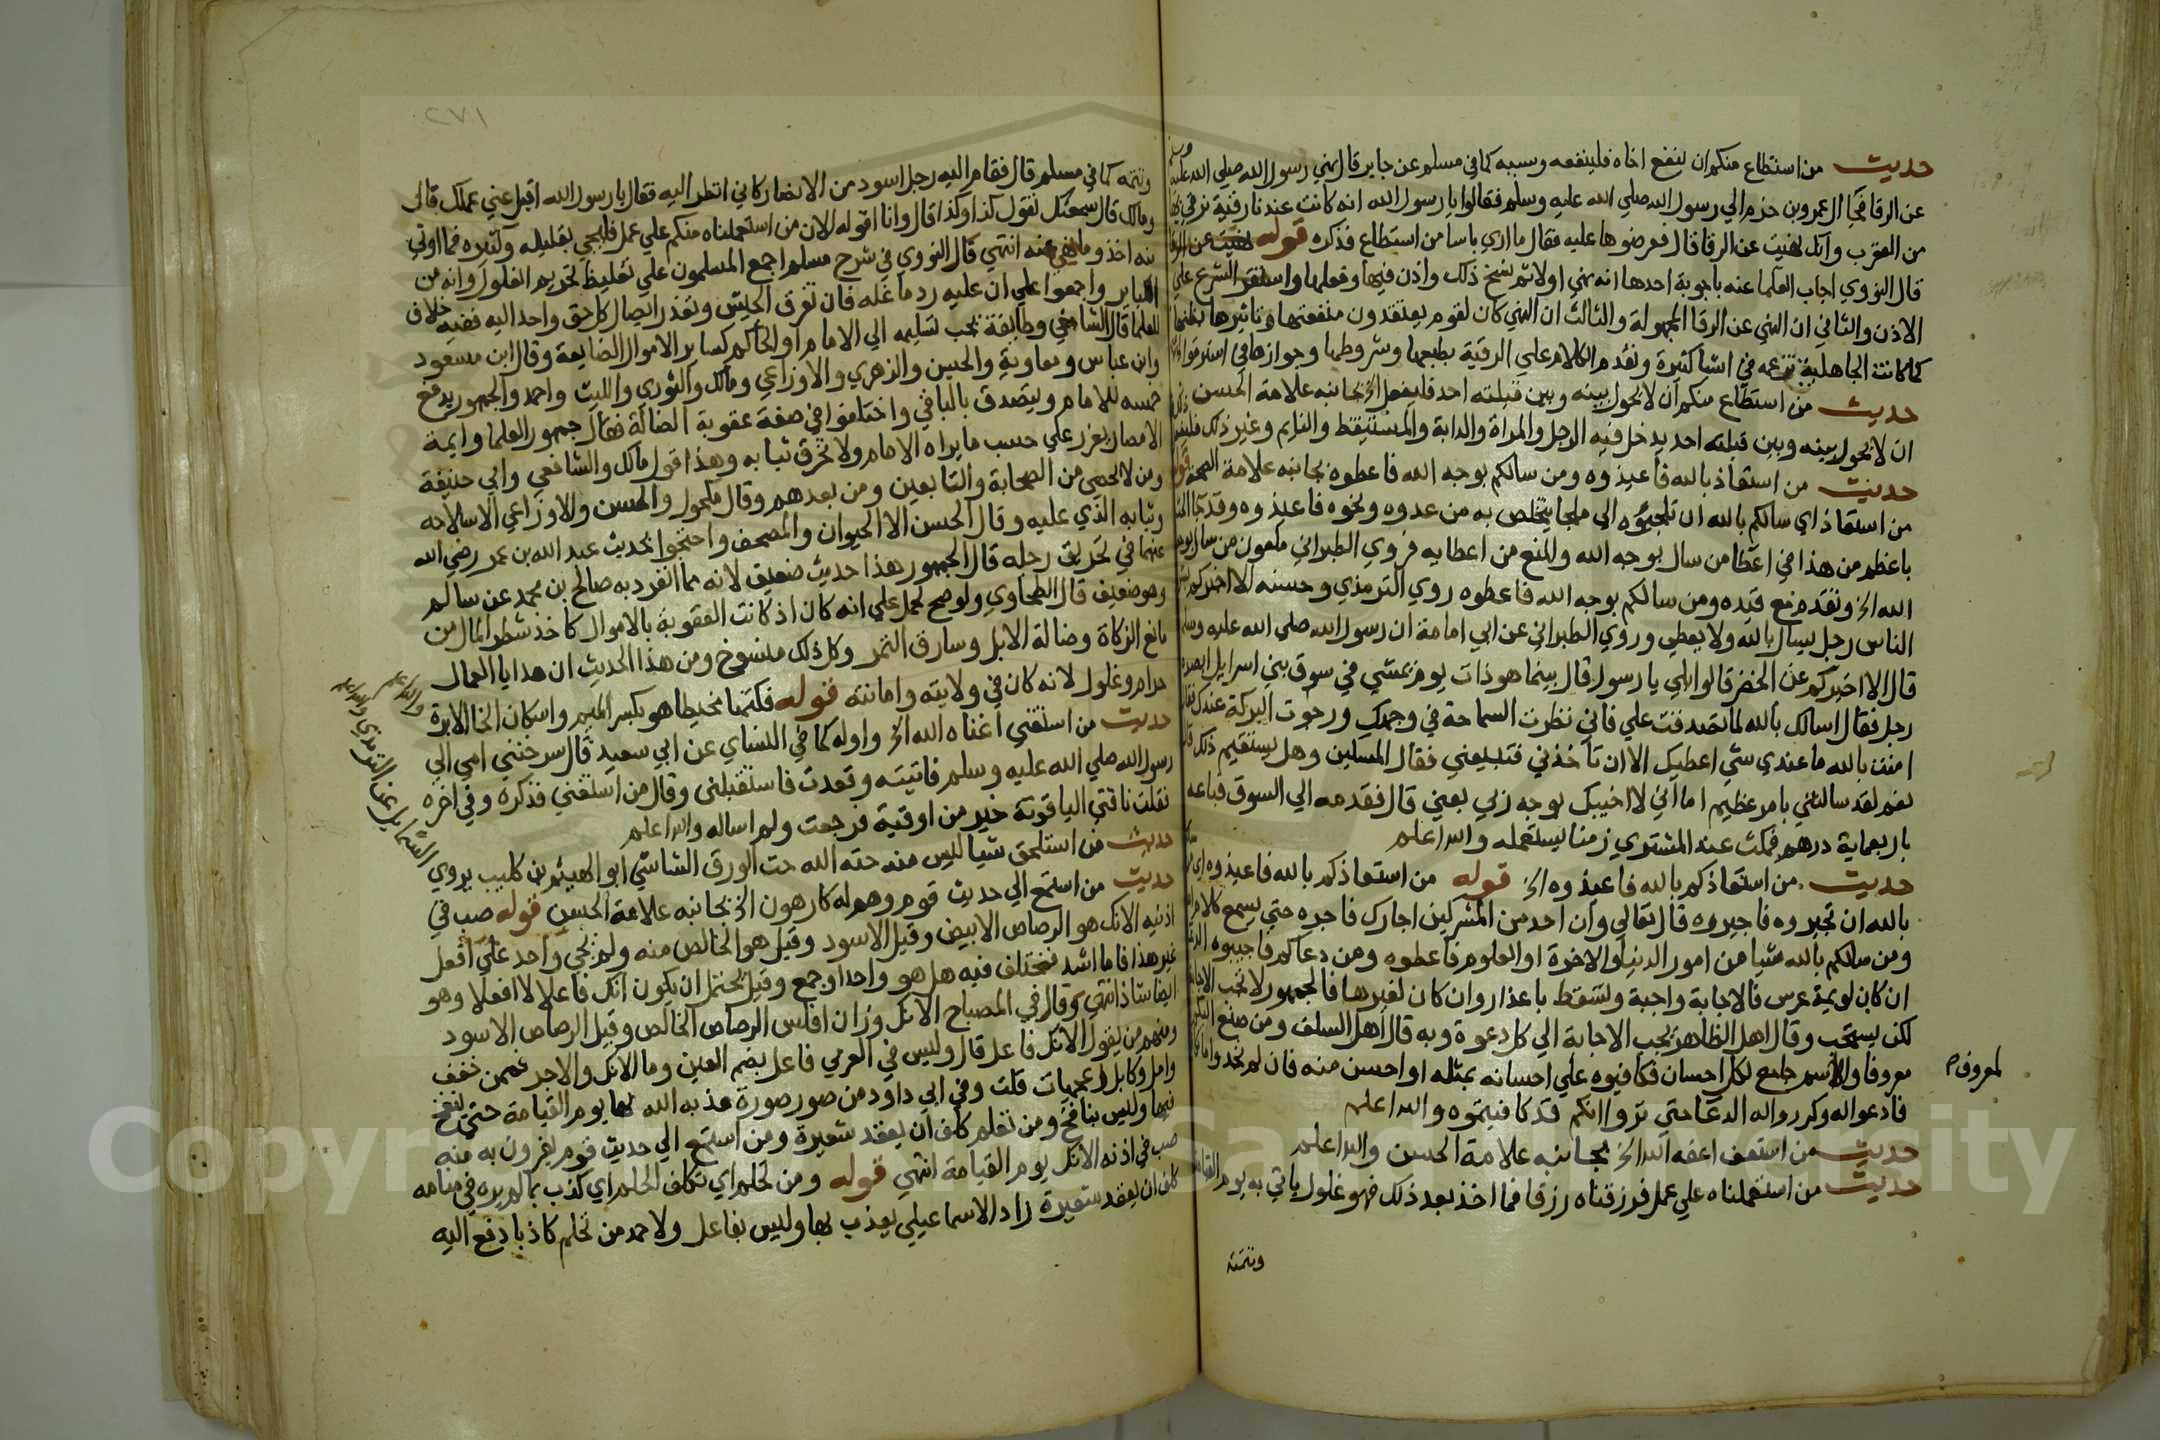 حديث من استطاع منكم ان ينفع اخاه فلينفعه وسببه كما في مسلم عن جابر قال نهي رسول الله صلي الله عليه وسلم
عن الرقا فجا ال عمرو بن حزم الي رسول الله صلي الله عليه وسلم فقالوا يا رسول الله انه كانت عندنا رقية نرقي بها
من العقرب وانك نهيت عن الرقا قال فعرضوها عليه فقال ما اري باسا من استطاع فذكره قوله نهيت عن الرقا
قال النووي اجاب العلما عنه باجوبة احدها انه نهي اولا ثم نسخ ذلك واذن فيها وفعلها واستقر الشرع علي
الاذن والثاني ان النهي عن الرقا المجهولة والثالث ان النهي كان لقوم يعتقدون منفعتها وتاثيرها بطبعها
كما كانت الجاهلية تزعمه في اشيا كثيرة وتقدم الكلام علي الرقية بطبعها وشروطها وجوازها في استرقوا
حديث من استطاع منكم ان لا يحول بينه وبين قبلته احد فليفعل الخ بجانبه علامة الحسن
ان لا يحول بينه وبين قبلته احد يدخل فيه الرجل والمراة والدابة والمستيقظ والنايم وغير ذلك
حديث من استعاذ بالله فاعيذوه ومن سالكم بوجه الله فاعطوه بجانبه علامة الصحة قوله
من استعاذ اي سالكم بالله ان تلجيؤه الي ملجا يتخلص به من عدوه ونحوه فاعيذوه وقد جا
باعظم من هذا في اعطا من سال بوجه الله والمنع من اعطايه فروي الطبراني ملعون من سال بوجه
الله الخ وتقدم مع قيده ومن سالكم بوجه الله فاعطوه روي الترمذي وحسنه الا اخبركم بشر
الناس رجل يسال بالله ولا يعطي وروي الطبراني عن ابي امامة ان رسول الله صلي الله عليه وسلم
قال الا اخبركم عن الخضر قالوا بلي يا رسول قال بينما هو ذات يوم يمشي في سوق بني اسرايل ابصره
رجل فقال اسالك بالله لما تصدقت علي فاني نظرت السماحة في وجهك ورجوت البركة عندك فقال
امنت بالله ما عندي شي اعطيك الا ان تاخذني فتبيعني فقال المسلمين وهل يستقيم ذلك قال
نعم لقد سالتني بامر عظيم اما اني لا اخيبك بوجه ربي بعني قال فقدمه الي السوق فباعه
باربعماية درهم فمكث عند المشتري زمنا يستعمله والله اعلم
حديث من استعاذكم بالله فاعيذوه الخ قوله من استعاذكم بالله فاعيذوه اي
بالله ان تجيروه فاجيروه قال تعالي وان احد من المشركين استجارك فاجره حتي يسمع كلام الله
ومن سالكم بالله شيا من امور الدنيا والاخرة او العلوم فاعطوه ومن دعاكم فاجيبوه
ان كان لويمة عرس فالاجابة واجبة وتسقط باعذار وان كان لغيرها فالجمهور لا تجب الاجابة
لكن يستحب وقال اهل الظاهر يجب الاجابة الي كل دعوة وبه قال اهل السلف ومن صنع اليكم
معروفا والاسم جامع لكل احسان فكافيوه علي احسانه بمثله او احسن منه فان لم تجدوا
لمعروف م
فادعوا له وكرروا له الدعا حتي تروا انكم قد كافيتموه والله اعلم
حديث من استعف اعفه الله الخ بجانبه علامة الحسن والله اعلم
حديث من استعملناه علي عمل فرزقناه رزقا فما اخذ بعد ذلك فهو غلول ياتي به يوم القيامة
وتتمته
٢٧١
وتتمته كما في مسلم قال فقام اليه رجل اسود من الانصار كاني انظر اليه فقال يا رسول الله اقبل عني عملك قال
ومالك قال سمعتك تقول كذا وكذا قال وانا اقوله الان من استعملناه منكم علي عمل فليجي بقليله وكثيره فما اوتي
منه اخذ وما نهي عنه انتهي قال النووي في شرح مسلم اجمع المسلمون علي تغليظ تحريم الغلول وانه من
الكباير واجمعوا علي ان عليه رد ما غله فان تفرق الجيش وتعذر ايصال كل حق واحد اليه ففيه خلاف
للعلما قال الشافعي وطايفة يجب تسليمه الي الامام او الحاكم كساير الاموال الضايعة وقال ابن مسعود
وابن عباس ومعاوية والحسن والزهري والاوزاعي ومالك والثوري والليث واحمد والجمهور يدفع
خمسه للامام ويتصدق بالباقي واختلفوا في صفة عقوبة الضالة فقال جمهور العلما وايمة
الامصار يعزر علي حسب ما يراه الامام ولا تحرق ثيابه وهذا قول مالك والشافعي وابي حنيفة
ومن لا يحصي من الصحابة والتابعين ومن بعدهم وقال مكحول والحسن والاوزاعي الا سلاحه
وثيابه الذي عليه وقال الحسن الا الحيوان والمصحف واحتجوا بحديث عبد الله بن عمر رضي الله
عنهما في تحريق رحله قال الجمهور هذا حديث ضعيف لانه مما انفرد به صالح بن محمد عن سالم
وهو ضعيف قال الطحاوي ولو صح لحمل علي انه كان اذ كانت العقوبة بالاموال كاخذ شطر المال من
مانع الزكاة وضالة الابل وسارق التمر وكل ذلك منسوخ ومن هذا الحديث ان هدايا العمال
حرام وغلول لانه كان في ولايته وامانته قوله فكتمنا مخيطا هو بكسر الميم واسكان الخا الابرة
حديث من استغني اغناه الله الخ واوله كما في النساي عن ابي سعيد قال سرحتني امي الي
رسول الله صلي الله عليه وسلم فاتيته وقعدت فاستقبلني وقال من استغني فذكره وفي اخره
فقلت ناقتي الياقوتة خير من اوقية فرجعت ولم اساله والله اعلم
حديث من استلحق شيا ليس منه حته الله حت الورق الشاشي ابو الهيثم بن كليب يروي الشمايل عن الترمذي والله اعلم
حديث من استمع الي حديث قوم وهم له كارهون الخ بجانبه علامة الحسن قوله صب في
اذنيه الانك هو الرصاص الابيض وقيل الاسود وقيل هو الخالص منه ولم يجي واحد علي افعل
غير هذا فاما اشد فمختلف فيه هل هو واحد او جمع وقيل يحتمل ان يكون انك فاعلا لا افعلا وهو
ايضا شاذ انتهي وقال في المصباح الانك وزان افلس الرصاص الخالص وقيل الرصاص الاسود
ومنهم من يقول الانك فاعل قال وليس في العربي فاعل بضم العين وما الانك والاجر فيمن خفف
وامل وكابل اعجميات قلت وفي ابي داود من صور صورة عذبه الله بها يوم القيامة حتي ينفخ
فيها وليس بنافخ ومن تحلم كلف ان يعقد شعيرة ومن استمع الي حديث قوم يفرون به منه
صب في اذنه الانك يوم القيامة انتهي قوله ومن تحلم اي تكلف الحلم اي كذب بما لم يره في منامه
كلف ان يعقد شعيرة زاد الاسماعيلي يعذب بها وليس بفاعل ولاحمد من تحلم كاذبا دفع اليه